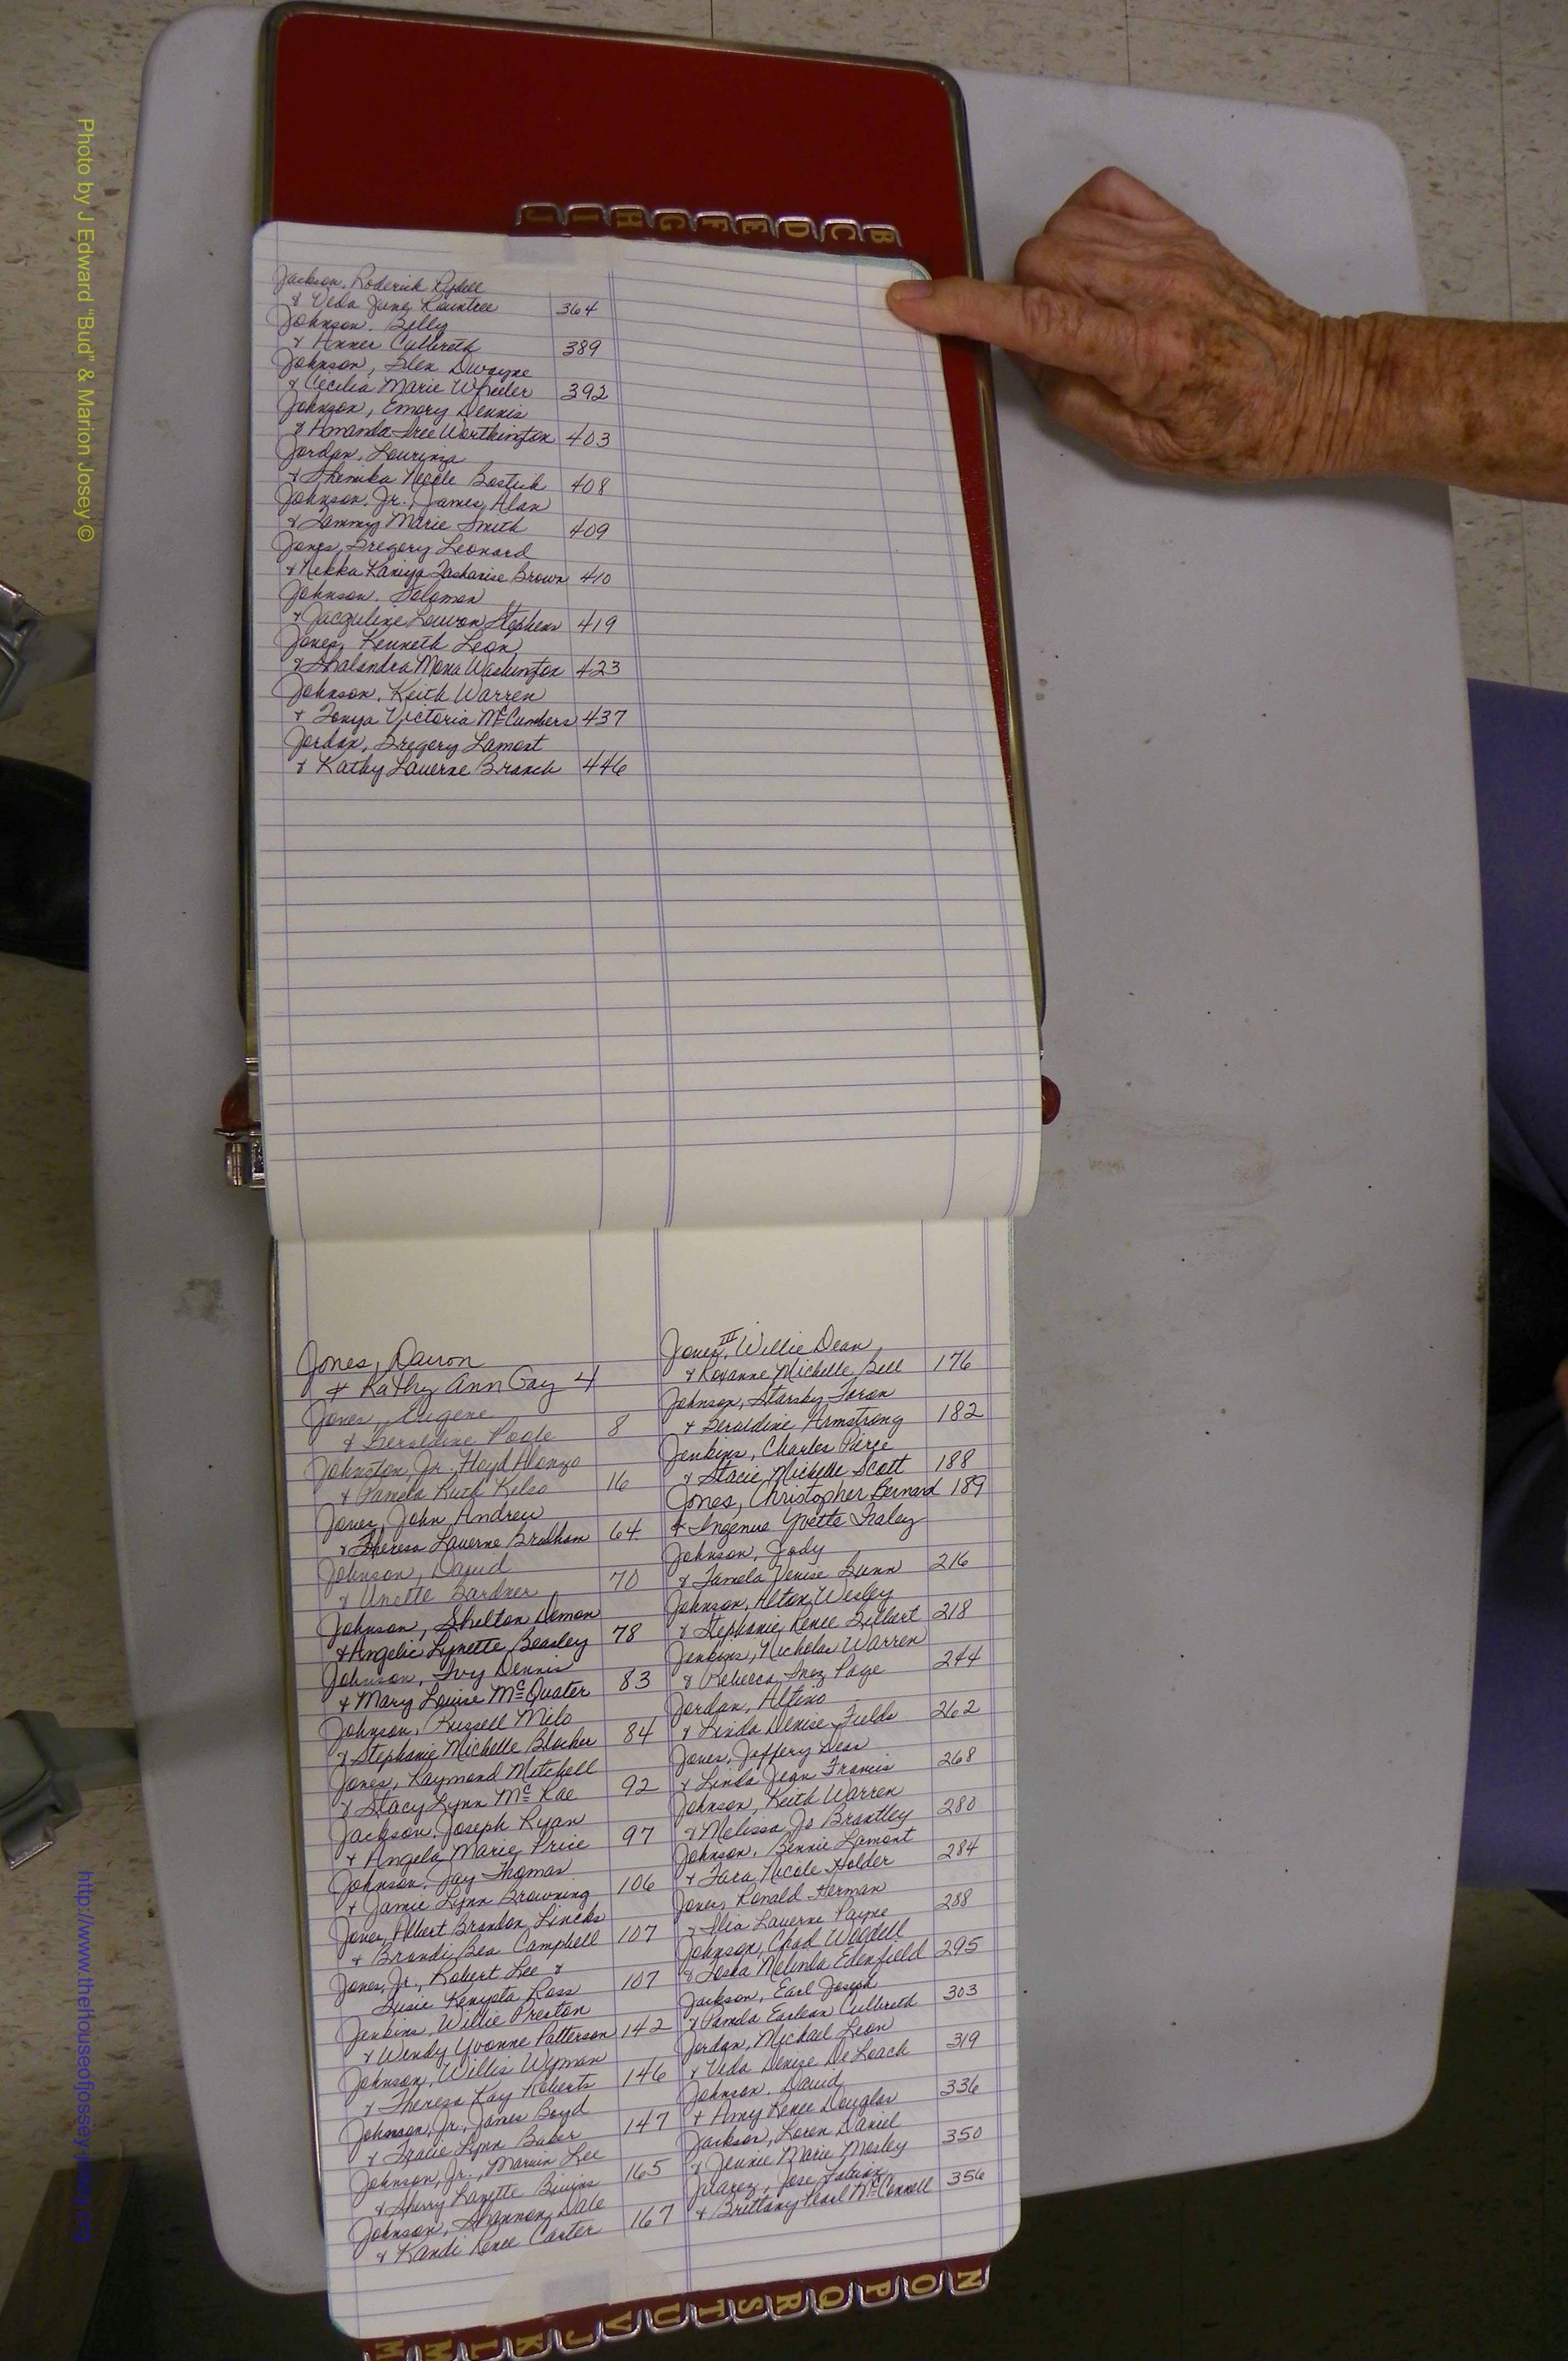 Photo by J Edward "Bud" & Marion Josey ©
J I H G F E D C B
Jackson, Roderick Rydell
& Veda June Rountree 364
Johnson, Billy
& Anner Culbreth 389
Johnson, Glen Dwayne
& Cecilia Marie Wheeler 392
Johnson, Emory Dennis
& Amanda Gree Worthington 403
Jordan, Lourenza
& Shemika Nicole Bostick 408
Johnson, Jr., James Alan
& Tammy Marie Smith 409
Jones, Gregory Leonard
& Nekka Kaniya Lasharise Brown 410
Johnson, Solomon
& Jacquline Louvon Stephens 419
Jones, Kenneth Leon
& Shalandra Mona Washington 423
Johnson, Keith Warren
& Tonya Victoria McCumbers 437
Jordan, Gregory Lamont
& Kathy Laverne Branch 446
Jones, Darron
& Kathy Ann Gay 4
Jones, Eugene
& Geraldine Poole 8
Johnston, Jr. Floyd Alonzo
& Pamela Ruth Kelso 16
Jones, John Andrew
& Theresa Laverne Bradham 64
Johnson, David
& Anette Gardner 70
Johnson, Shelton Demon
& Angelic Lynette Beasley 78
Johnson, Ivy Dennis
& Mary Louise McQuater 83
Johnson, Russell Milo
& Stephanie Michelle Blocker 84
Jones, Raymond Mitchell
& Stacy Lynn McRae 92
Jackson, Joseph Ryan
& Angela Marie Price 97
Johnson, Jay Thomas
& Jamie Lynn Browning 106
Jones, Albert Brandon Lincks
& Brandi Bea Campbell 107
Jones, Jr., Robert Lee &
Susie Kenyata Ross 107
Jenkins, Willie Preston
& Wendy Yvonne Patterson 142
Johnson, Willis Wyman
& Theresa Kay Roberts 146
Johnson, Jr., James Boyd
& Tracie Lynn Baker 147
Johnson, Jr., Marvin Lee
& Sherry Lanette Bivins 165
Johnson, Shannon Dale
& Kandi Renee Carter 167
Jones, III, Willie Dean
& Roxanne Michelle Bell 176
Johnson, Starsky Toron
& Geraldine Armstrong 182
Jenkins, Charles Pierce
& Stacie Michelle Scott 188
Jones, Christopher Bernard 189
& Ingenue Yvette Fraley
Johnson, Jody
& Tamela Denise Gunn 216
Johnson, Alton Wesley
& Stephanie Renee Gilbert 218
Jenkins, Nicholas Warren
& Rebecca Inez Page 244
Jordan, Altino
& Linda Denise Fields 262
Jones, Jeffery Dean
& Linda Jean Francis 268
Johnson, Keith Warren
& Melissa Jo Brantley 280
Johnson, Bennie Lamont
& Tara Nicole Holder 284
Jones, Ronald Herman
& Ilia Laverne Payne 288
Johnson, Chad Weddell
& Melinda Edenfield 295
Jackson, Earl Joseph
& Pamela Earlean Culbreth 303
Jordan, Michael Leon
& Veda Denise DeLoach 319
Johnson, David
& Amy Renee Douglas 336
Jackson, Loren Daniel
& Jennie Marie Mosley 350
Juarez, Jose
& Brittany Pearl McConnell 356
M M L K J V U T S R Q P O N
http://www.thehouseofjosseyjosey.org